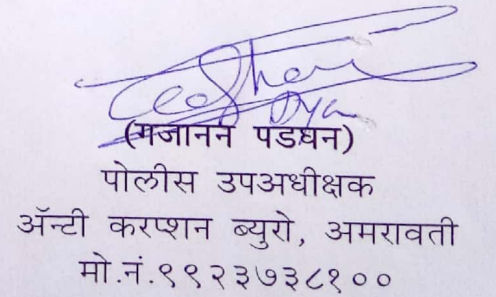 (गजानन पडघन)
पोलीस उपअधीक्षक
ॲन्टी करप्शन ब्युरो, अमरावती
मो.नं.९९२३७३८१००